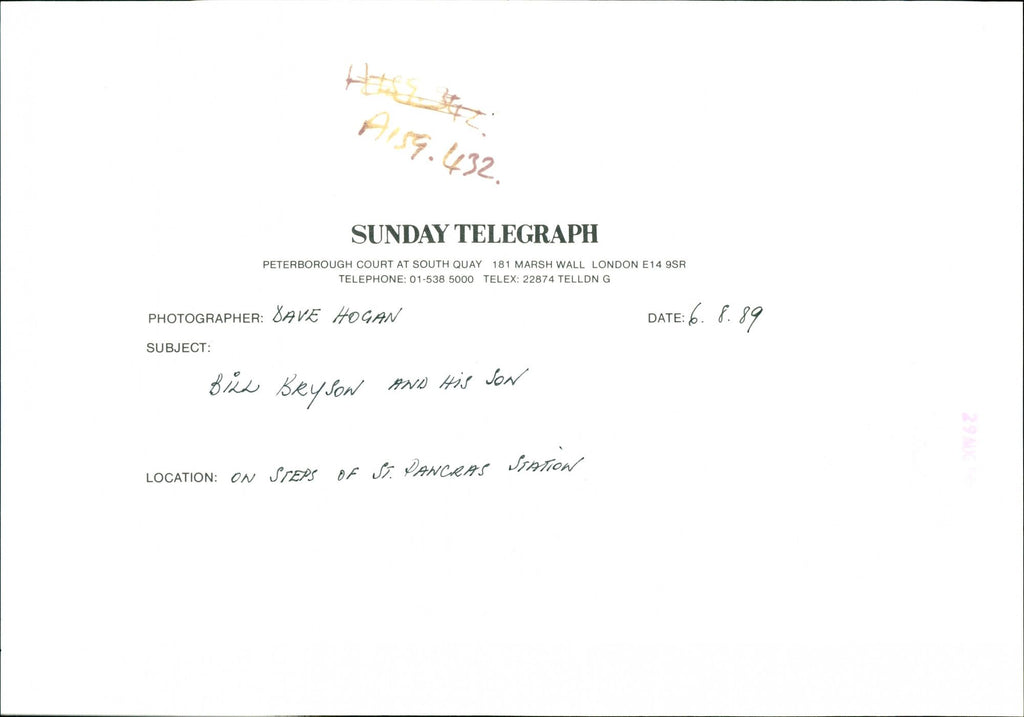 A159.432.
SUNDAY TELEGRAPH
PETERBOROUGH COURT AT SOUTH QUAY 181 MARSH WALL LONDON E14 9SR
TELEPHONE: 01-538 5000 TELEX: 22874 TELLDN G
PHOTOGRAPHER: DAVE HOGAN DATE: 6. 8. 89
SUBJECT:
BILL BRYSON AND HIS SON
LOCATION: ON STEPS OF ST. PANCRAS STATION